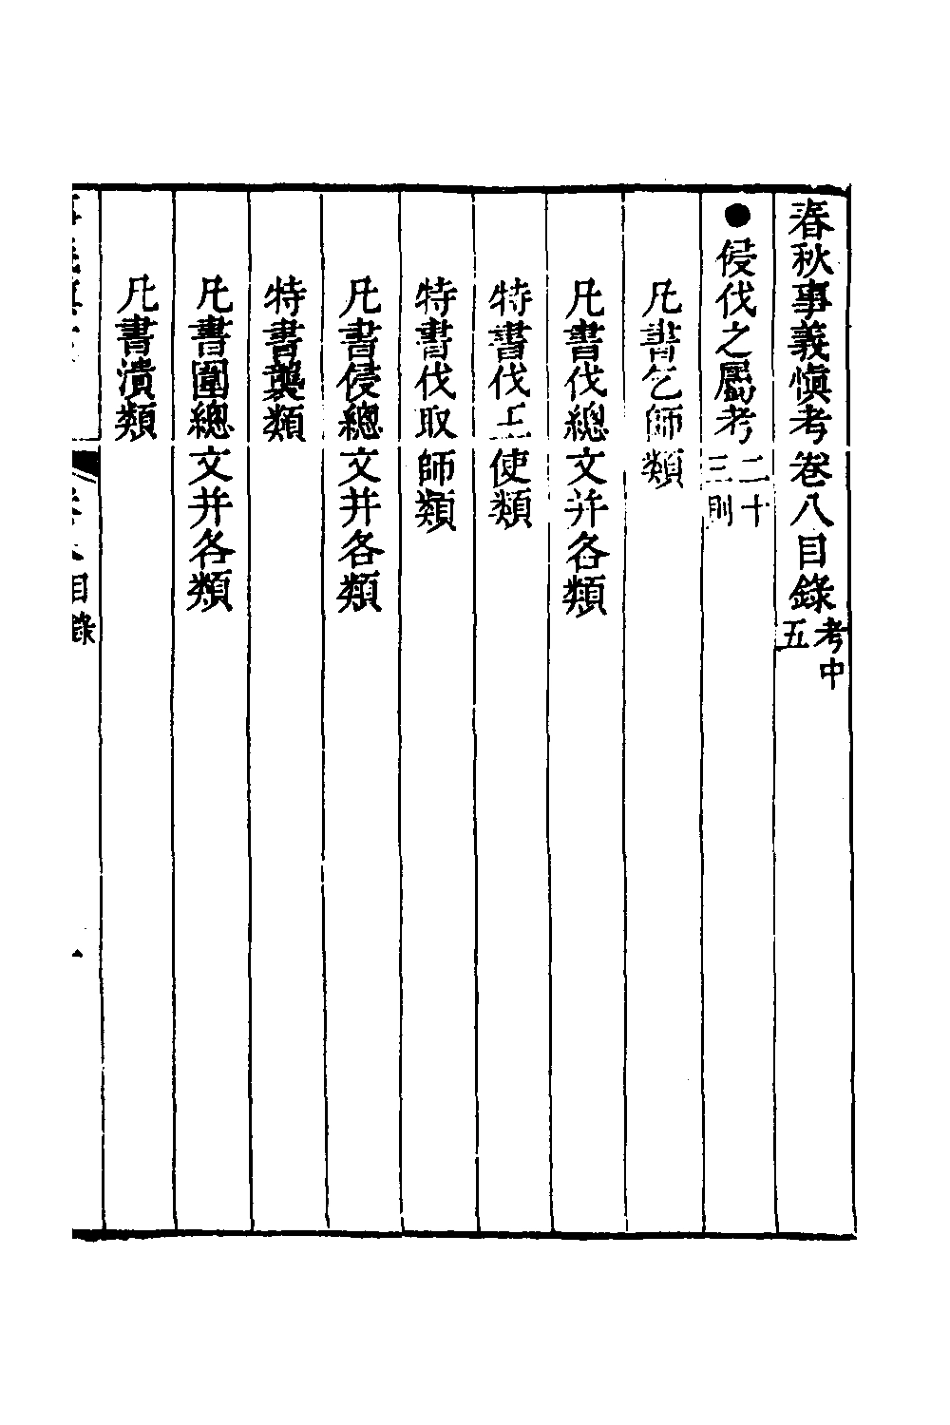 春秋事義愼考卷八目錄 考中五
●侵伐之屬考 二十三則
凡書乞師類
凡書伐總文并各類
特書伐王使類
特書伐取師類
凡書侵總文并各類
特書襲類
凡書圍總文并各類
凡書潰類
卷八目錄